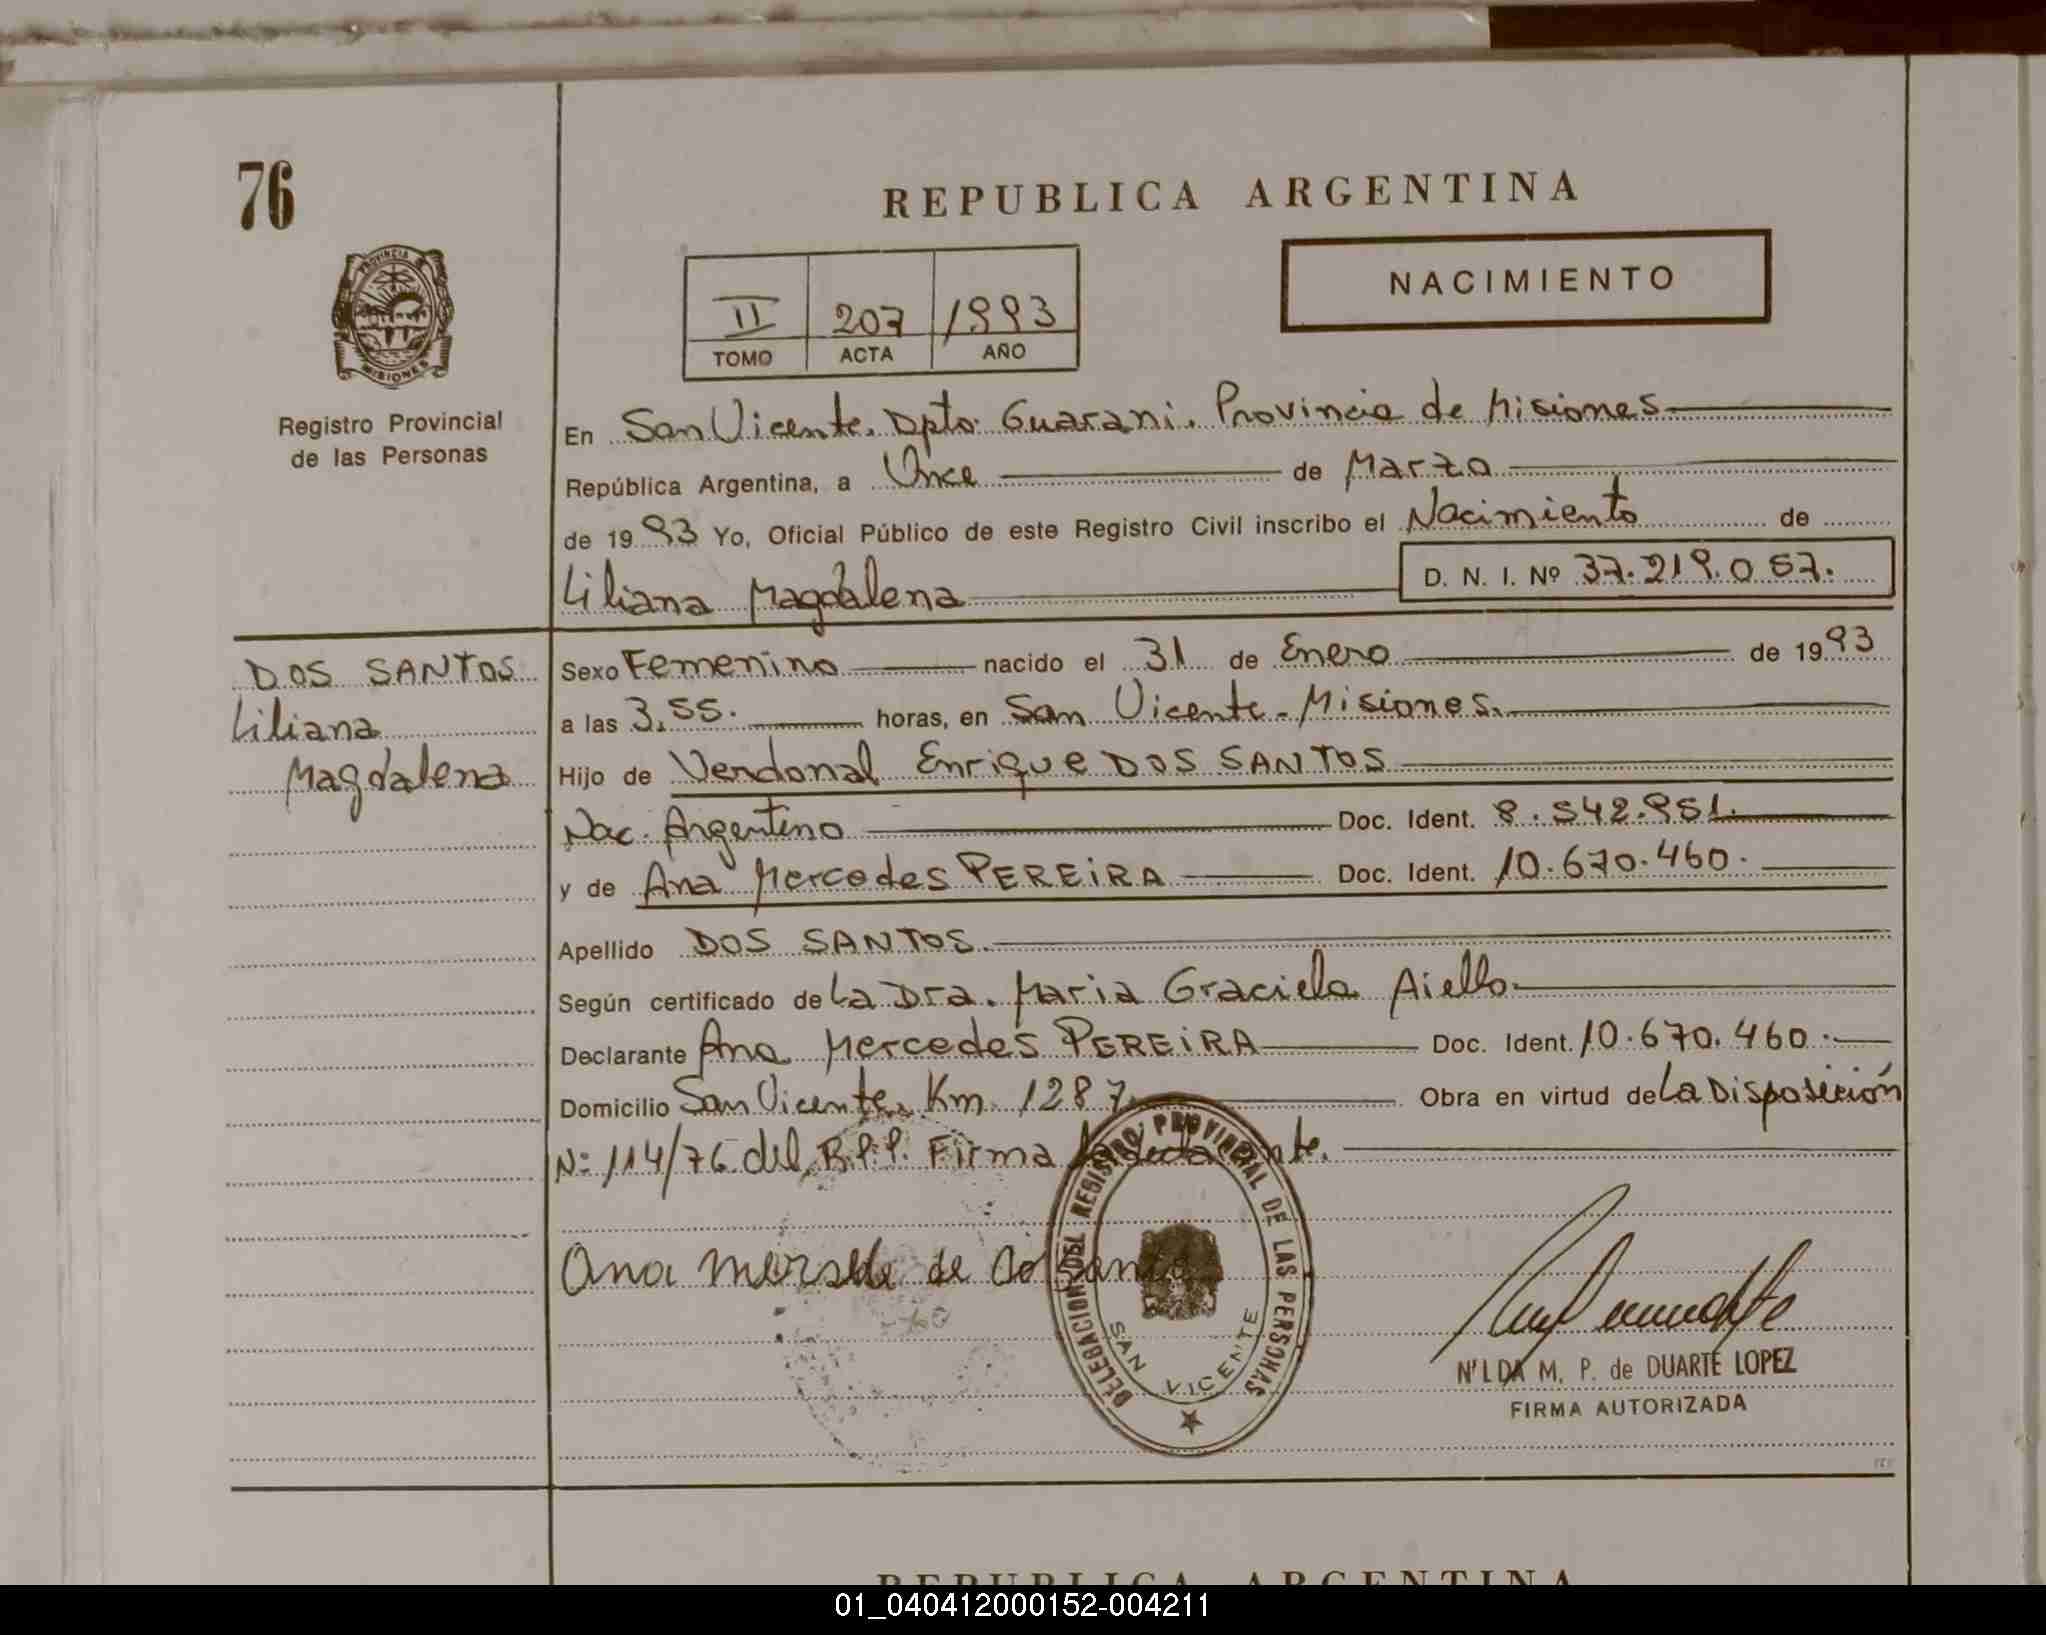 76
REPUBLICA ARGENTINA
NACIMIENTO
II 207 1993
TOMO ACTA AÑO
PROVINCIA DE
MISIONES
Registro Provincial
de las Personas
En San Vicente. Dpto. Guarani. Provincia de Misiones
República Argentina, a Once de Marzo
de 1993 Yo, Oficial Público de este Registro Civil inscribo el Nacimiento de
Liliana Magdalena D. N. I. Nº 37.219.057.
DOS SANTOS
Liliana
Magdalena
Sexo Femenino nacido el 31 de Enero de 1993
a las 3,55. horas, en San Vicente - Misiones.
Hijo de Vendonal Enrique DOS SANTOS
Nac. Argentino Doc. Ident. 8.542.951.
y de Ana Mercedes PEREiRA Doc. Ident. 10.670.460.
Apellido DOS SANTOS.
Según certificado de La Dra. Maria Graciela Aiello
Declarante Ana Mercedes PEREiRA Doc. Ident. 10.670.460.
Domicilio San Vicente, Km. 1287 Obra en virtud de La Disposición
Nº 114/76 del R.P.P. Firma
Ana de
DELEGACION DEL REGISTRO PROVINCIAL DE LAS PERSONAS
SAN VICENTE
NILDA M. P. de DUARTE LOPEZ
FIRMA AUTORIZADA
REPUBLICA ARGENTINA
01_040412000152-004211